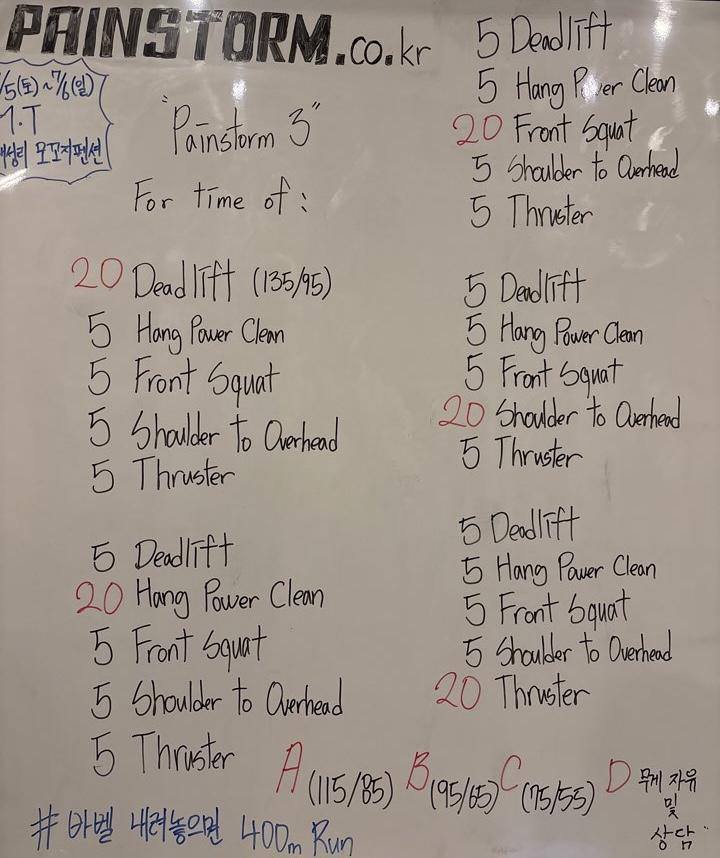 PAINSTORM.co.kr
/5(토)~7/6(일)
M.T
모꼬지펜션
"Painstorm 3"
For time of:
20 Deadlift (135/95)
5 Hang Power Clean
5 Front Squat
5 Shoulder to Overhead
5 Thruster
5 Deadlift
20 Hang Power Clean
5 Front Squat
5 Shoulder to Overhead
5 Thruster
5 Deadlift
5 Hang Power Clean
20 Front Squat
5 Shoulder to Overhead
5 Thruster
5 Deadlift
5 Hang Power Clean
5 Front Squat
20 Shoulder to Overhead
5 Thruster
5 Deadlift
5 Hang Power Clean
5 Front Squat
5 Shoulder to Overhead
20 Thruster
A (115/85) B (95/65) C (75/55) D 무게 자유
및
상담
# 바벨 내려놓으면 400m Run